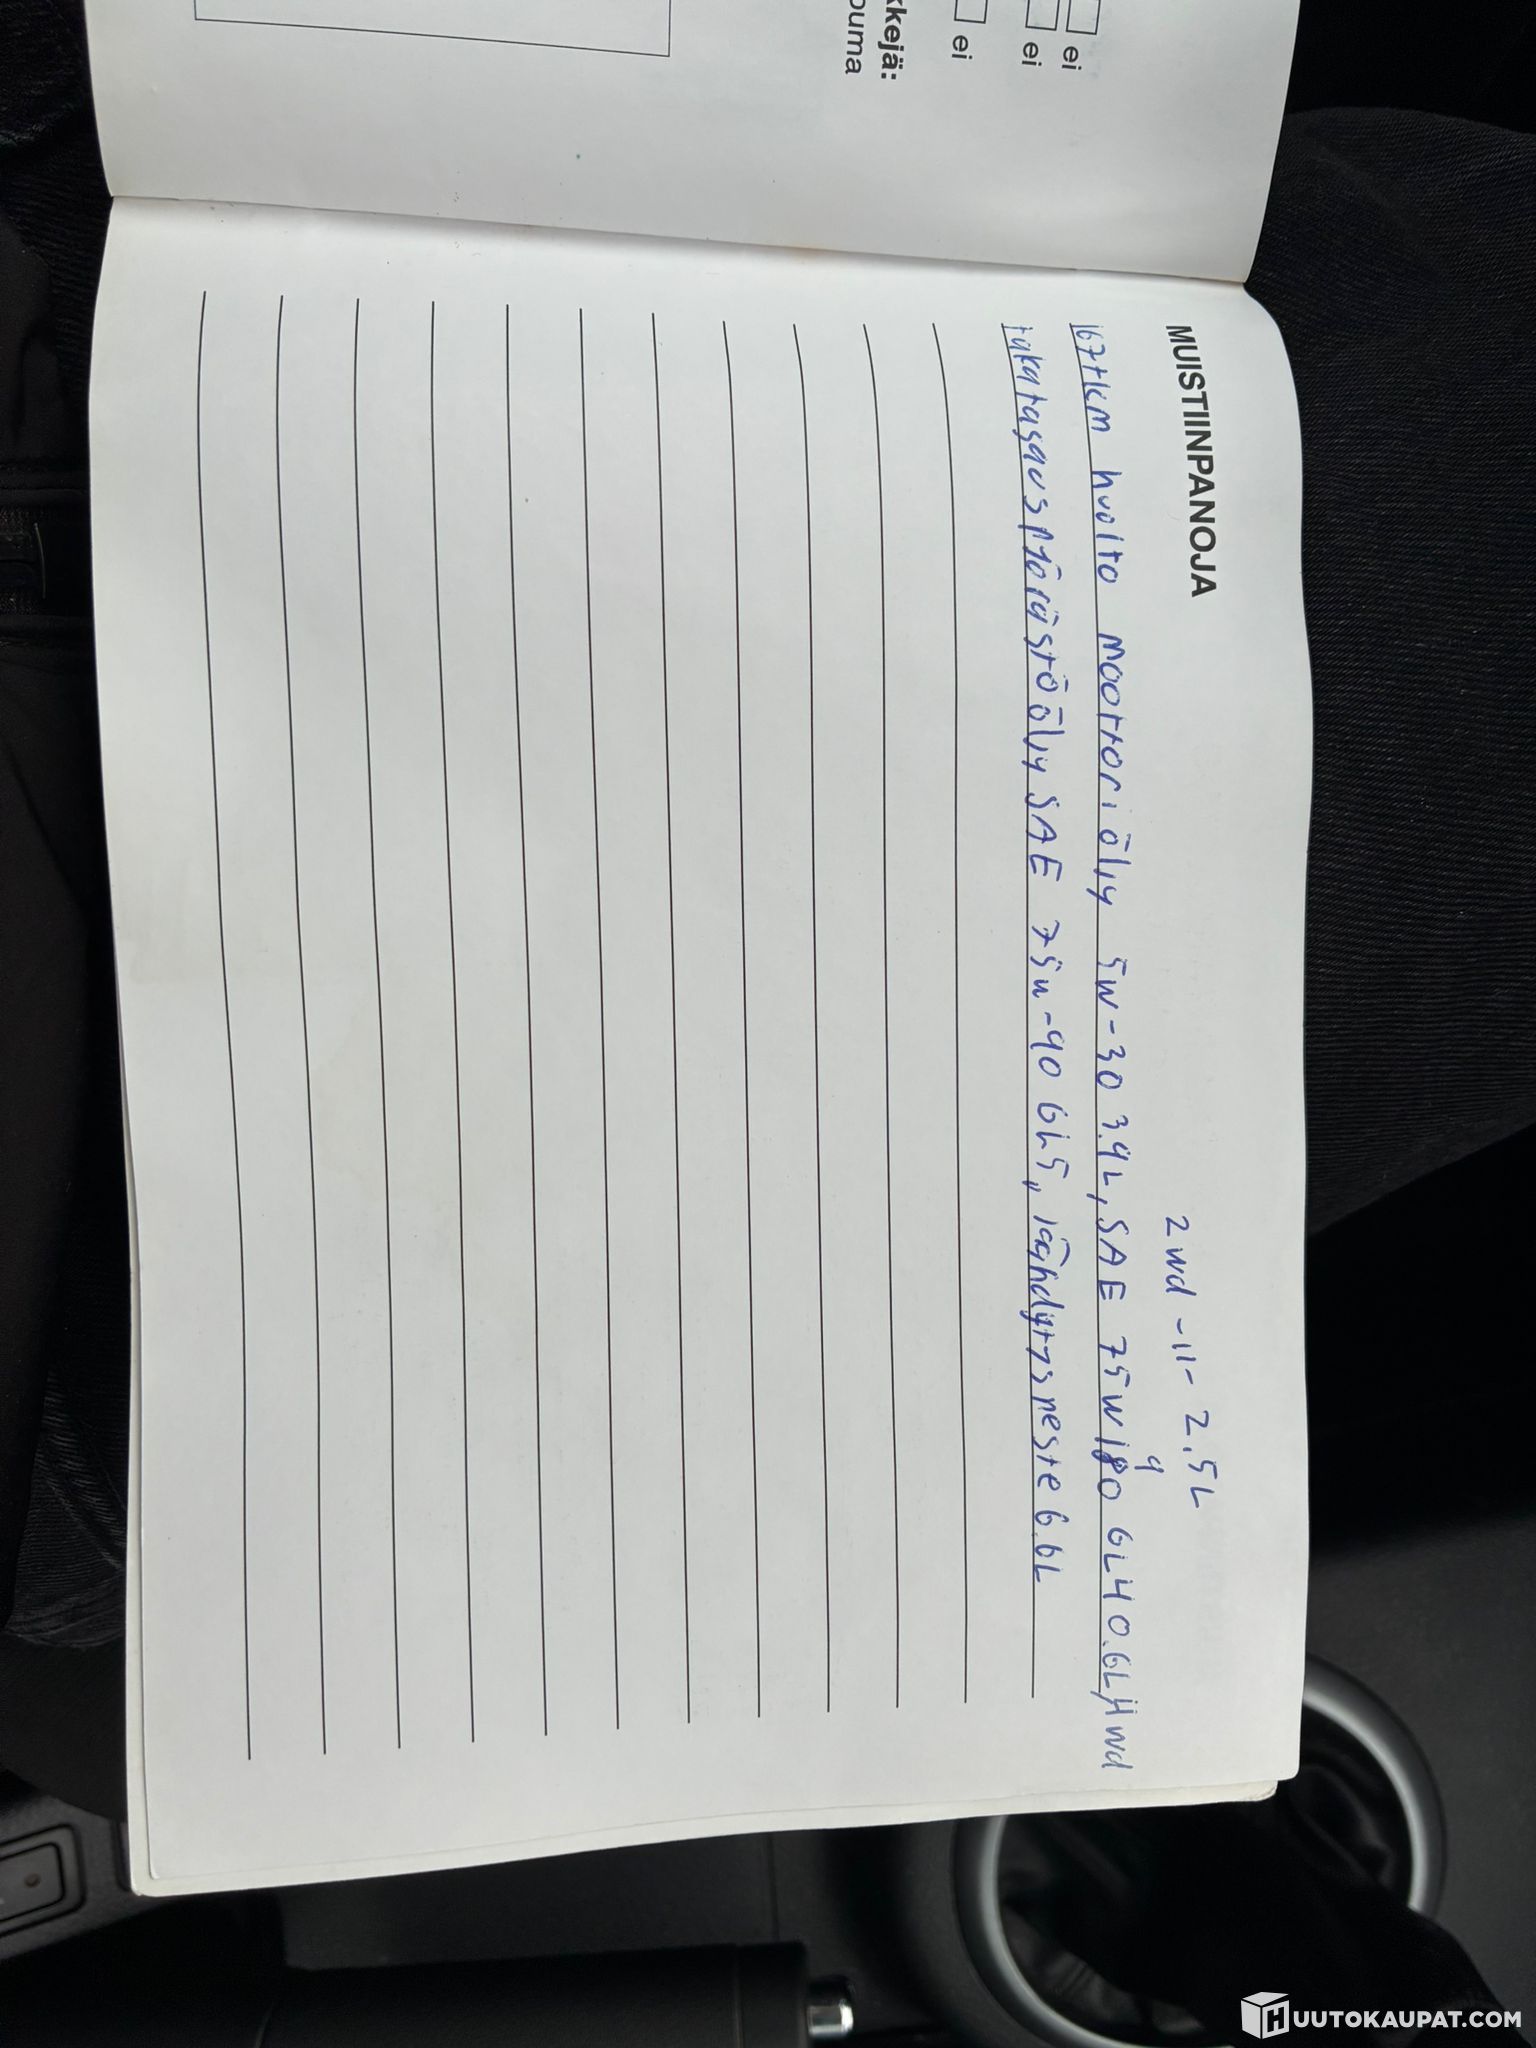 ei
ei
ei
kkejä:
ouma
MUISTIINPANOJA
2wd -11- 2.5L
9
167tkm huolto moottoriöljy 5W-30 3.9L, SAE 75W180 GL4 0.6L/4wd
takatasauspyörästö öljy SAE 75W-90 GL5,, jäähdytysneste 6.6L
HUUTOKAUPAT.COM